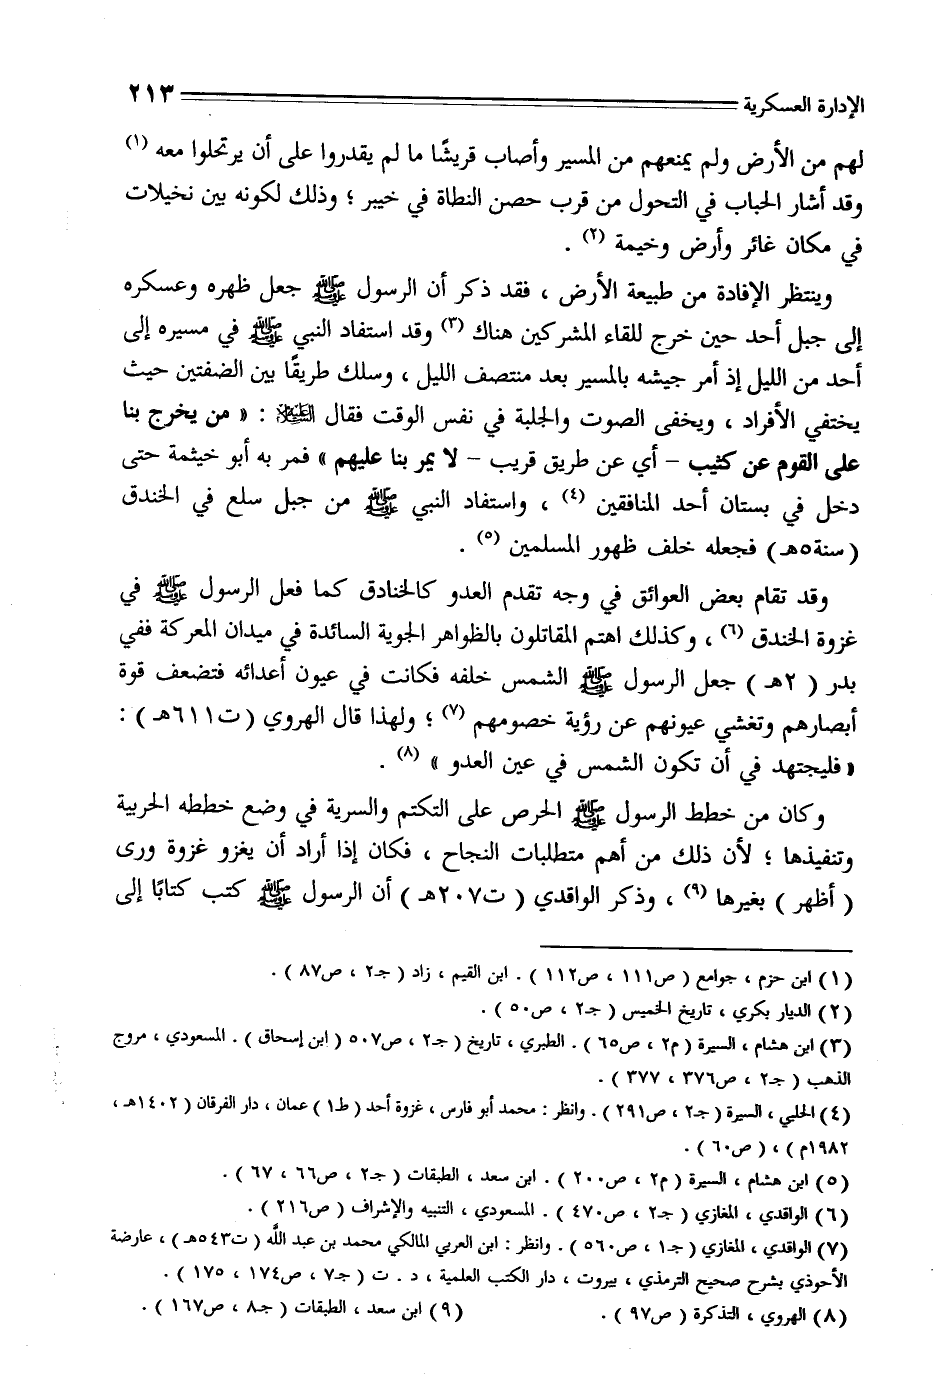 الإدارة العسكرية ٢١٣
لهم من الأرض ولم يمنعهم من المسير وأصاب قريشًا ما لم يقدروا على أن يرتحلوا معه (١)
وقد أشار الحباب في التحول من قرب حصن النطاة في خيبر ؛ وذلك لكونه بين نخيلات
في مكان غائر وأرض وخيمة (٢) .
وينتظر الإفادة من طبيعة الأرض ، فقد ذكر أن الرسول ﷺ جعل ظهره وعسكره
إلى جبل أحد حين خرج للقاء المشركين هناك (٣) وقد استفاد النبي ﷺ في مسيره إلى
أحد من الليل إذ أمر جيشه بالمسير بعد منتصف الليل ، وسلك طريقًا بين الضفتين حيث
يختفي الأفراد ، ويخفى الصوت والجلبة في نفس الوقت فقال الطَّيِّئلاً : « من يخرج بنا
على القوم عن كثيب – أي عن طريق قريب – لا يمر بنا عليهم » فمر به أبو خيثمة حتى
دخل في بستان أحد المنافقين (٤) ، واستفاد النبي ﷺ من جبل سلع في الخندق
( سنة٥هـ ) فجعله خلف ظهور المسلمين (٥) .
وقد تقام بعض العوائق في وجه تقدم العدو كالخنادق كما فعل الرسول ﷺ في
غزوة الخندق (٦) ، وكذلك اهتم المقاتلون بالظواهر الجوية السائدة في ميدان المعركة ففي
بدر ( ٢هـ ) جعل الرسول ﷺ الشمس خلفه فكانت في عيون أعدائه فتضعف قوة
أبصارهم وتغشي عيونهم عن رؤية خصومهم (٧) ؛ ولهذا قال الهروي ( ت٦١١هـ ) :
« فليجتهد في أن تكون الشمس في عين العدو » (٨) .
وكان من خطط الرسول ﷺ الحرص على التكتم والسرية في وضع خططه الحربية
وتنفيذها ؛ لأن ذلك من أهم متطلبات النجاح ، فكان إذا أراد أن يغزو غزوة ورى
( أظهر ) بغيرها (٩) ، وذكر الواقدي ( ت٢٠٧هـ ) أن الرسول ﷺ كتب كتابًا إلى
(١) ابن حزم ، جوامع ( ص١١١ ، ص١١٢ ) . ابن القيم ، زاد ( جـ٢ ، ص٨٧ ) .
(٢) الديار بكري ، تاريخ الخميس ( جـ٢ ، ص٥٠ ) .
(٣) ابن هشام ، السيرة ( م٢ ، ص٦٥ ) . الطبري ، تاريخ ( جـ٢ ، ص٥٠٧ ( ابن إسحاق ) . المسعودي ، مروج
الذهب ( جـ٢ ، ص٣٧٦ ، ٣٧٧ ) .
(٤) الحلبي ، السيرة ( جـ٢ ، ص٢٩١ ) . وانظر : محمد أبو فارس ، غزوة أحد ( ط١ ) عمان ، دار الفرقان ( ١٤٠٢هـ ،
١٩٨٢م ) ، ( ص٦٠ ) .
(٥) ابن هشام ، السيرة ( م٢ ، ص٢٠٠ ) . ابن سعد ، الطبقات ( جـ٢ ، ص٦٦ ، ٦٧ ) .
(٦) الواقدي ، المغازي ( جـ٢ ، ص٤٧٠ ) . المسعودي ، التنبيه والإشراف ( ص٢١٦ ) .
(٧) الواقدي ، المغازي ( جـ١ ، ص٥٦٠ ) . وانظر : ابن العربي المالكي محمد بن عبد الله ( ت٥٤٣هـ ) ، عارضة
الأحوذي بشرح صحيح الترمذي ، بيروت ، دار الكتب العلمية ، د . ت ( جـ٧ ، ص١٧٤ ، ١٧٥ ) .
(٨) الهروي ، التذكرة ( ص٩٧ ) . (٩) ابن سعد ، الطبقات ( جـ٨ ، ص١٦٧ ) .